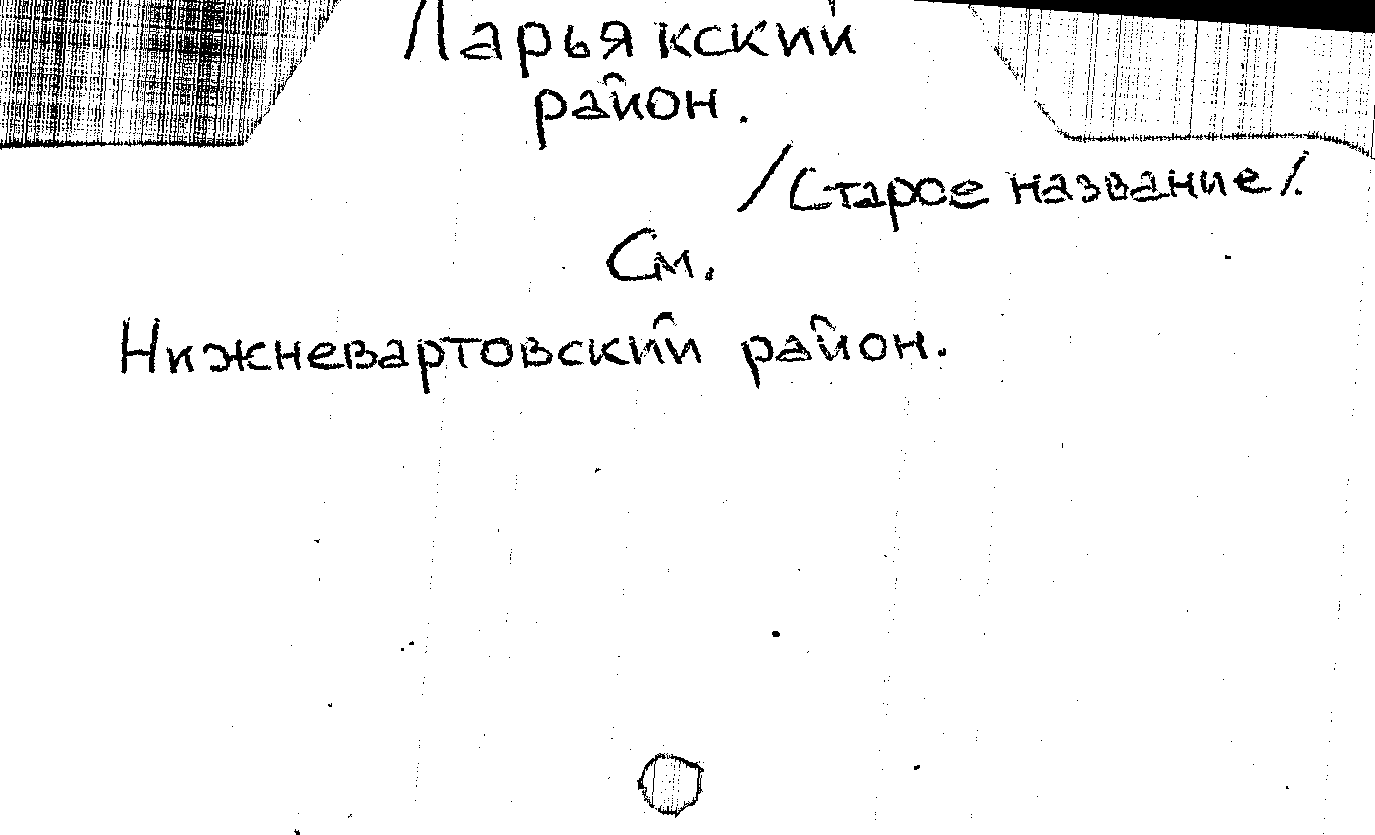 Ларьякский
район.
/Старое название/.
См.
Нижневартовский район.